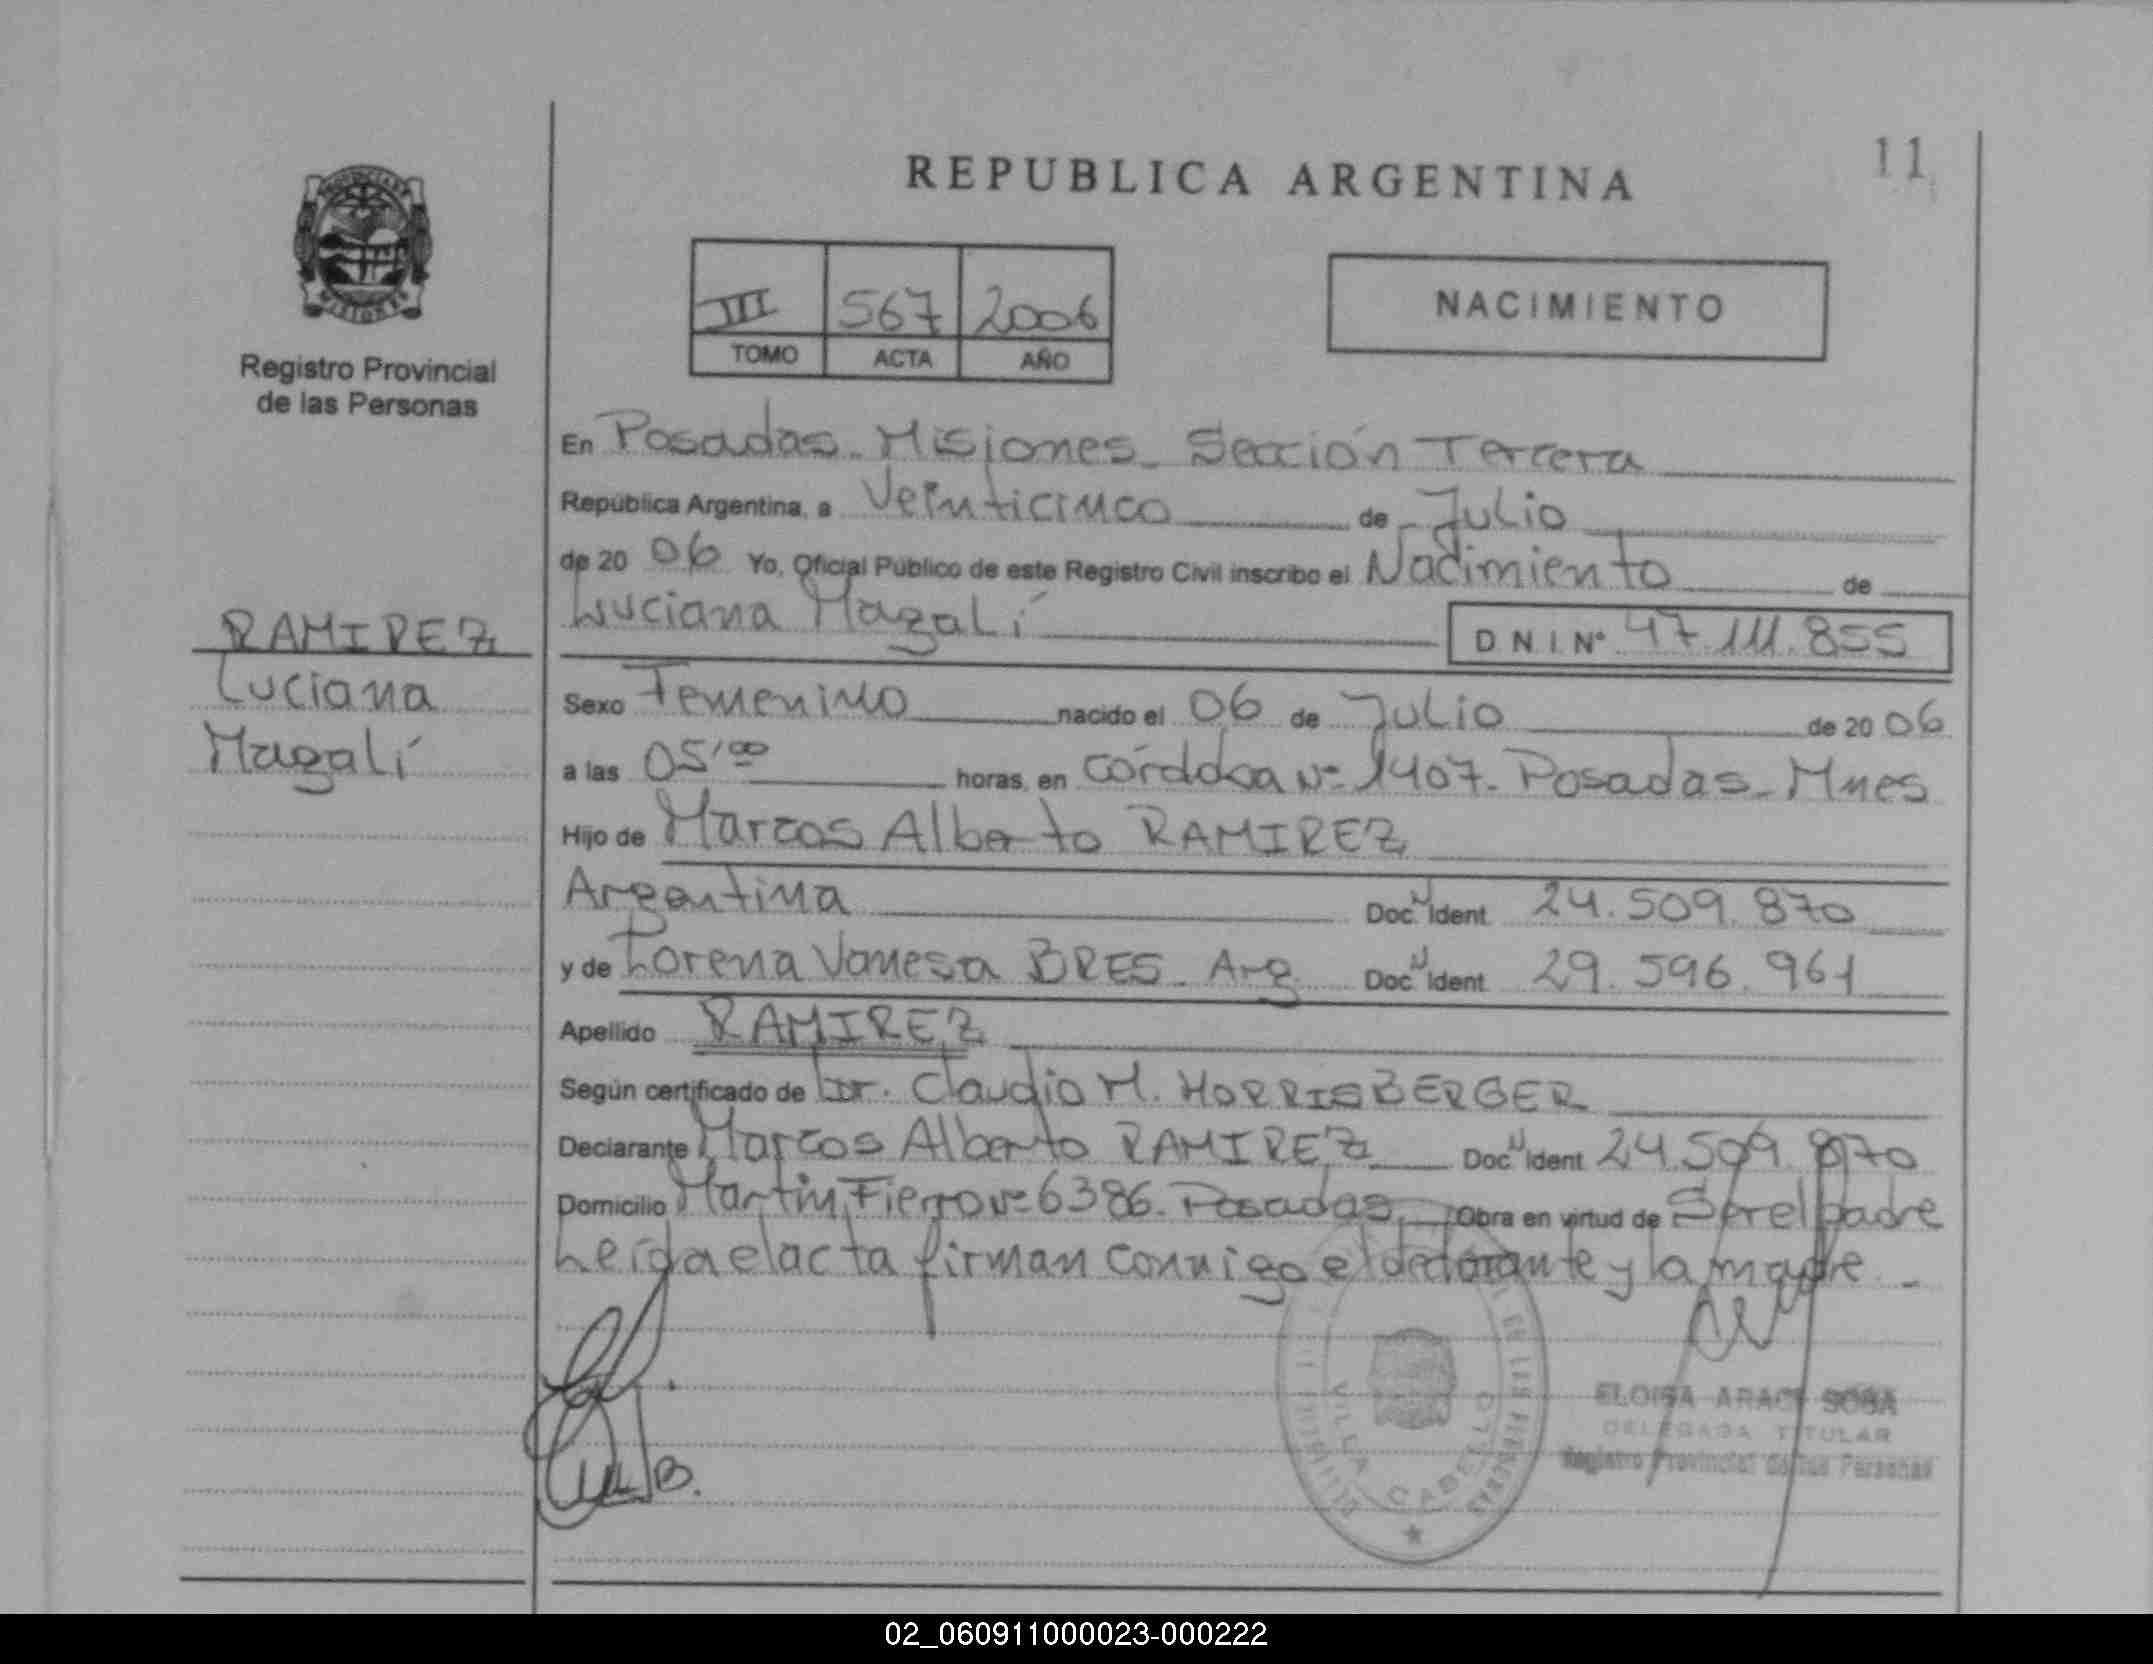 REPUBLICA ARGENTINA
11
Registro Provincial
de las Personas
III 567 2006
TOMO ACTA AÑO
NACIMIENTO
En Posadas - Misiones - Sección Tercera
República Argentina, a Veinticinco de Julio
de 20 06 Yo, Oficial Público de este Registro Civil inscribo el Nacimiento de
Luciana Magalí D.N.I. Nº 47.111.855
RAMIREZ
Luciana
Magalí
Sexo Femenino nacido el 06 de Julio de 20 06
a las 05,00 horas, en Córdoba Nº 1407 - Posadas - Mnes
Hijo de Marcos Alberto RAMIREZ
Argentina Doc. N Ident. 24.509.870
y de Lorena Vanesa BRES - Arg. Doc. N Ident. 29.596.961
Apellido RAMIREZ
Según certificado de Dr. Claudio M. HORRISBERGER
Declarante Marcos Alberto RAMIREZ Doc. N Ident. 24.509.870
Domicilio Martín Fierro Nº 6386 - Posadas - Obra en virtud de Ser el padre
Leída el acta firman conmigo el declarante y la madre -
VILLA CABELLO
ELOISA ARACI SOSA
DELEGADA TITULAR
Registro Provincial de las Personas
02_060911000023-000222